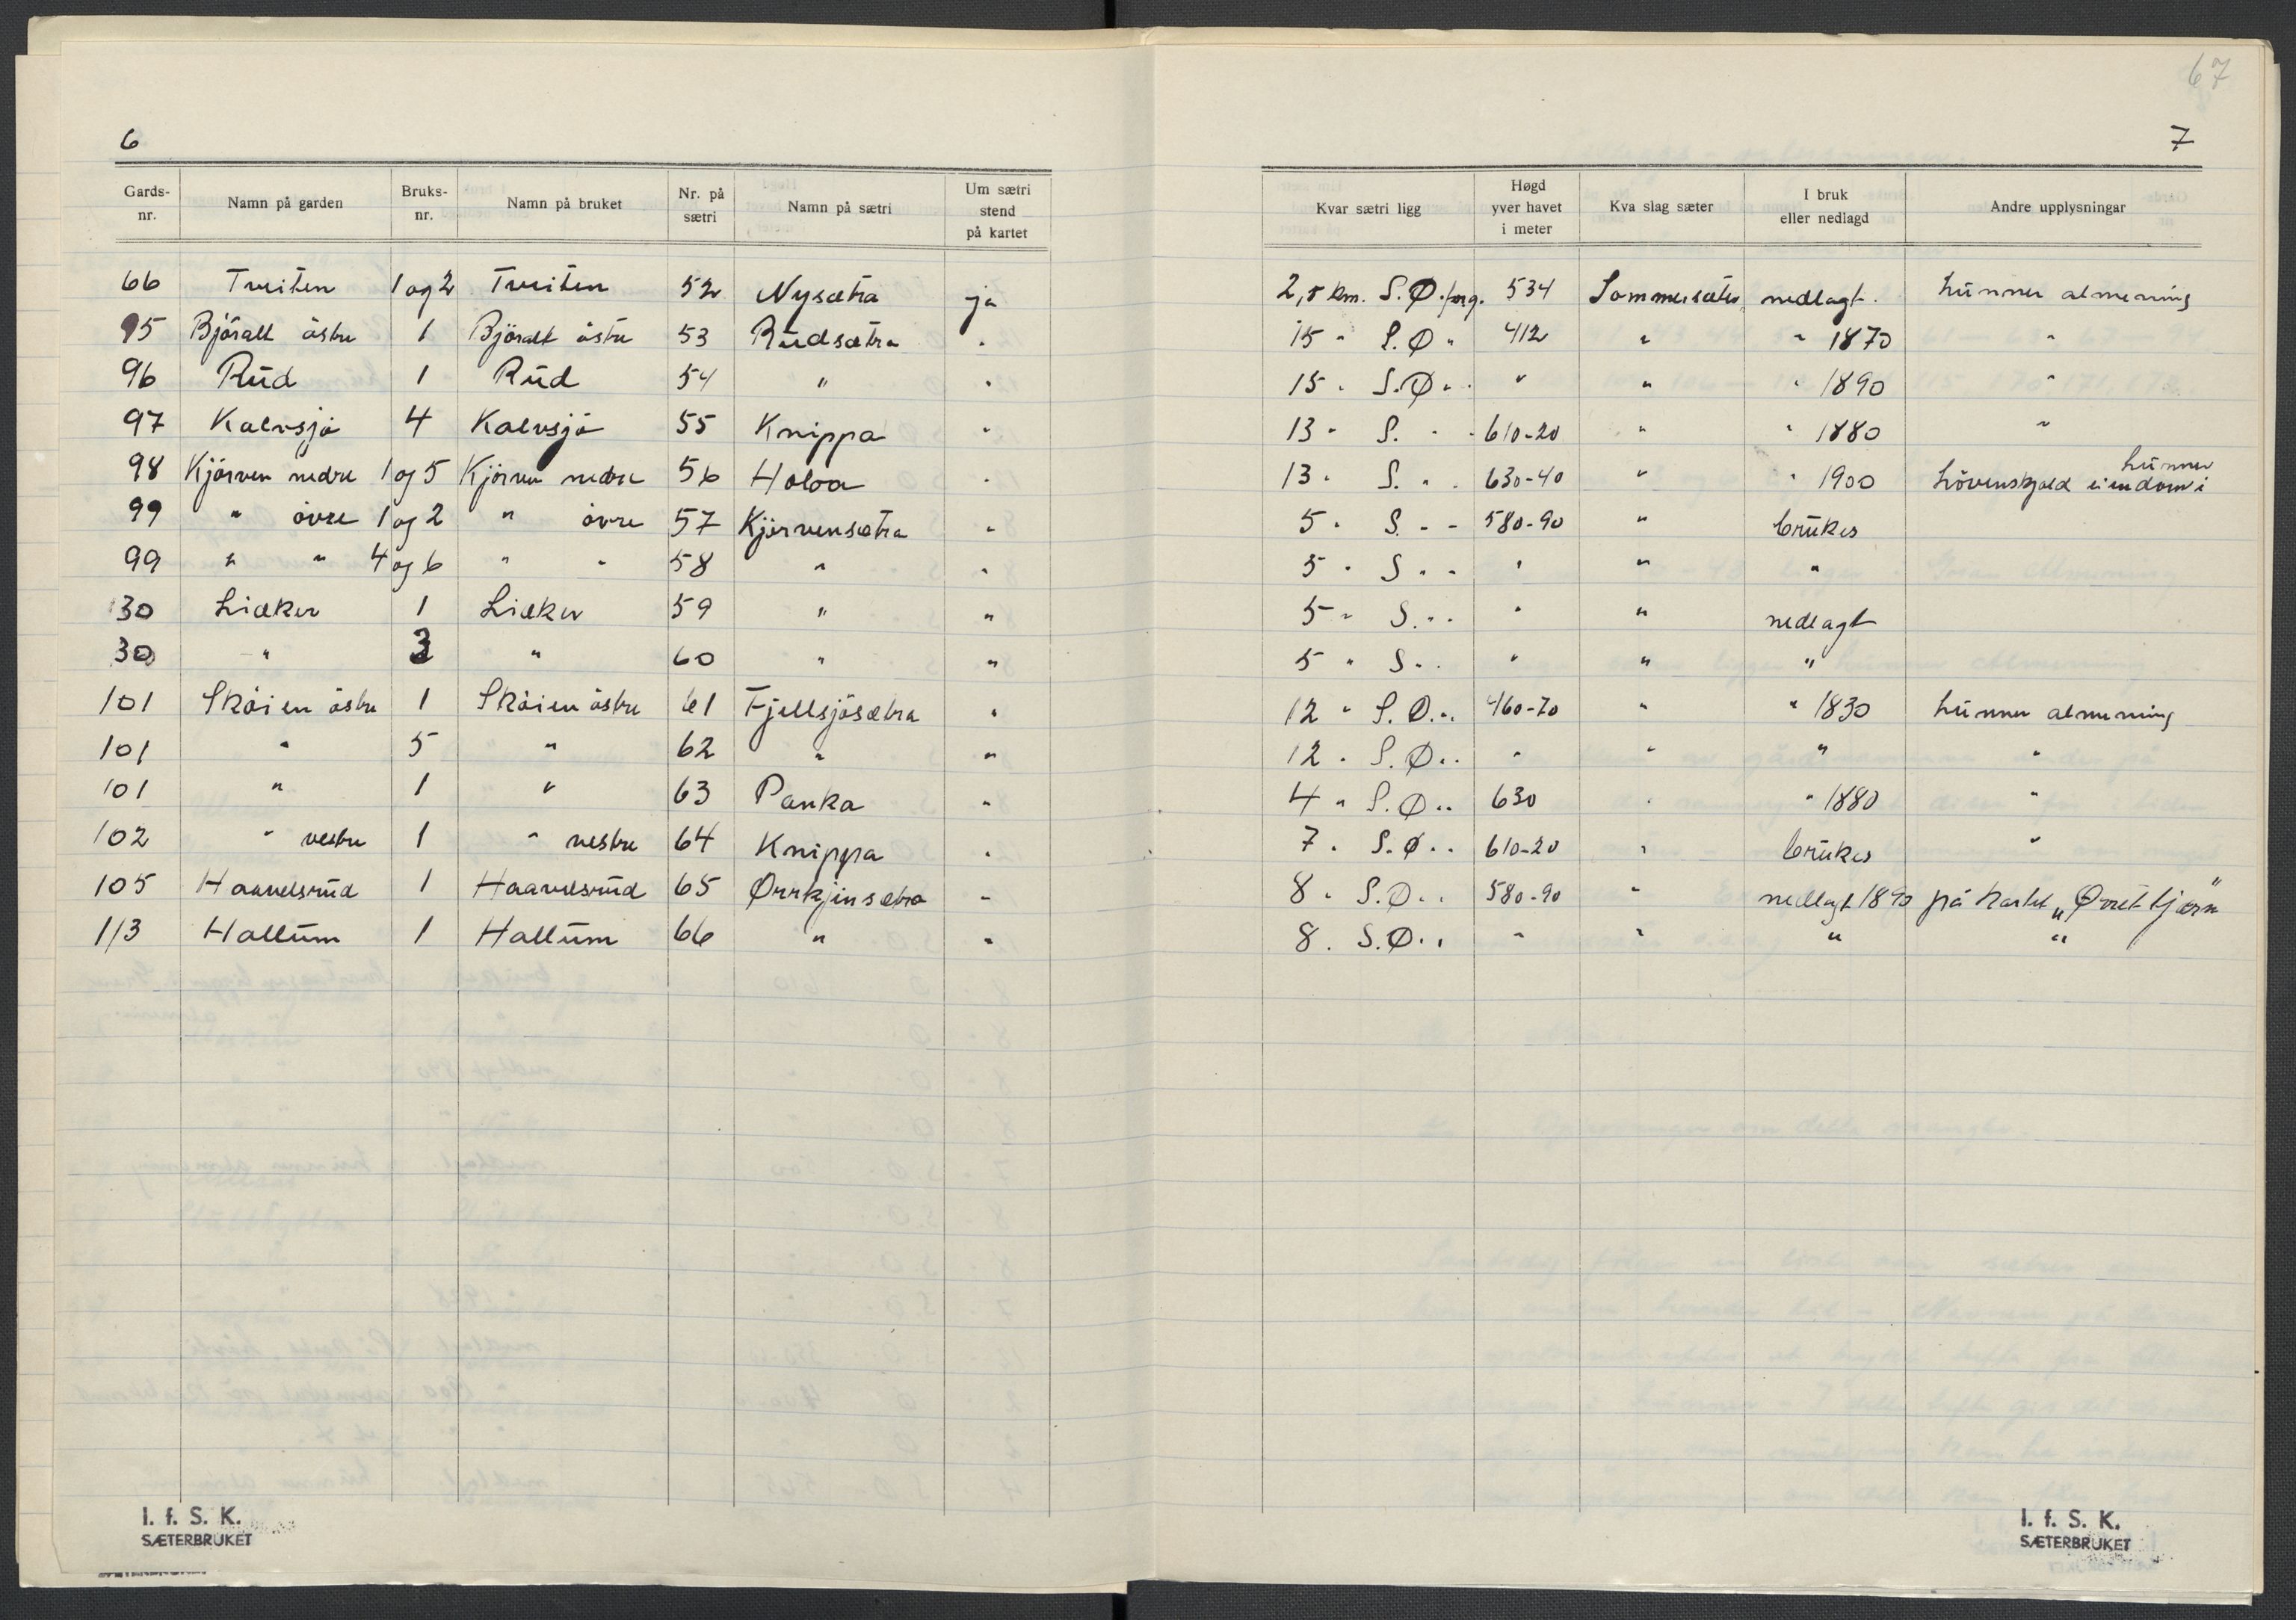 67
6
7
Gards-nr. Namn på garden Bruks-nr. Namn på bruket Nr. på sætri Namn på sætri Um sætri stend på kartet Kvar sætri ligg Høgd yver havet i meter Kva slag sæter I bruk eller nedlagd Andre upplysningar
66 Tveiten 1 og 2 Tveiten 52 Nysætra ja 2,5 km. S.Ø. 534 Sommersæter nedlagt. Lunner almening
95 Björalt östre 1 Björalt östre 53 Rudsætra " 15 " S.Ø " 412 " " 1870 "
96 Rud 1 Rud 54 " " 15 " S.Ø " " " " 1890 "
97 Kalvsjö 4 Kalvsjö 55 Knippa " 13 " S. " " 610-20 " " 1880 "
98 Kjörven nedre 1 og 5 Kjörven nedre 56 Holoa " 13 " S. " " 630-40 " " 1900 Lövenskjold eiendom i Lunner
99 " övre 1 og 2 " övre 57 Kjörvensætra " 5 " S. " " 580-90 " brukes
99 " " 4 og 6 " " 58 " " 5 " S " " " " "
30 Liæker 1 Liæker 59 " " 5 " S. " " " " nedlagt
30 " 3 " 60 " " 5 " S " " " " "
101 Sköien östre 1 Sköien östre 61 Fjellsjösætra " 12 " S.Ø. " " 460-70 " " 1830 Lunner almening
101 " 5 " 62 " " 12 " S.Ø. " " " " " "
101 " 1 " 63 Panka " 4 " S.Ø " " 630 " " 1880 "
102 " vestre 1 " vestre 64 Knippa " 7 " S.Ø. " " 610-20 " brukes "
105 Haavelsrud 1 Haavelsrud 65 Ørrkjinsætra " 8 " S.Ø. " " 580-90 " nedlagt 1890 på kartet „Ørretjern"
113 Hallum 1 Hallum 66 " " 8 " S.Ø. " " " " " "
I. f. S. K.
SÆTERBRUKET
I. f. S. K.
SÆTERBRUKET